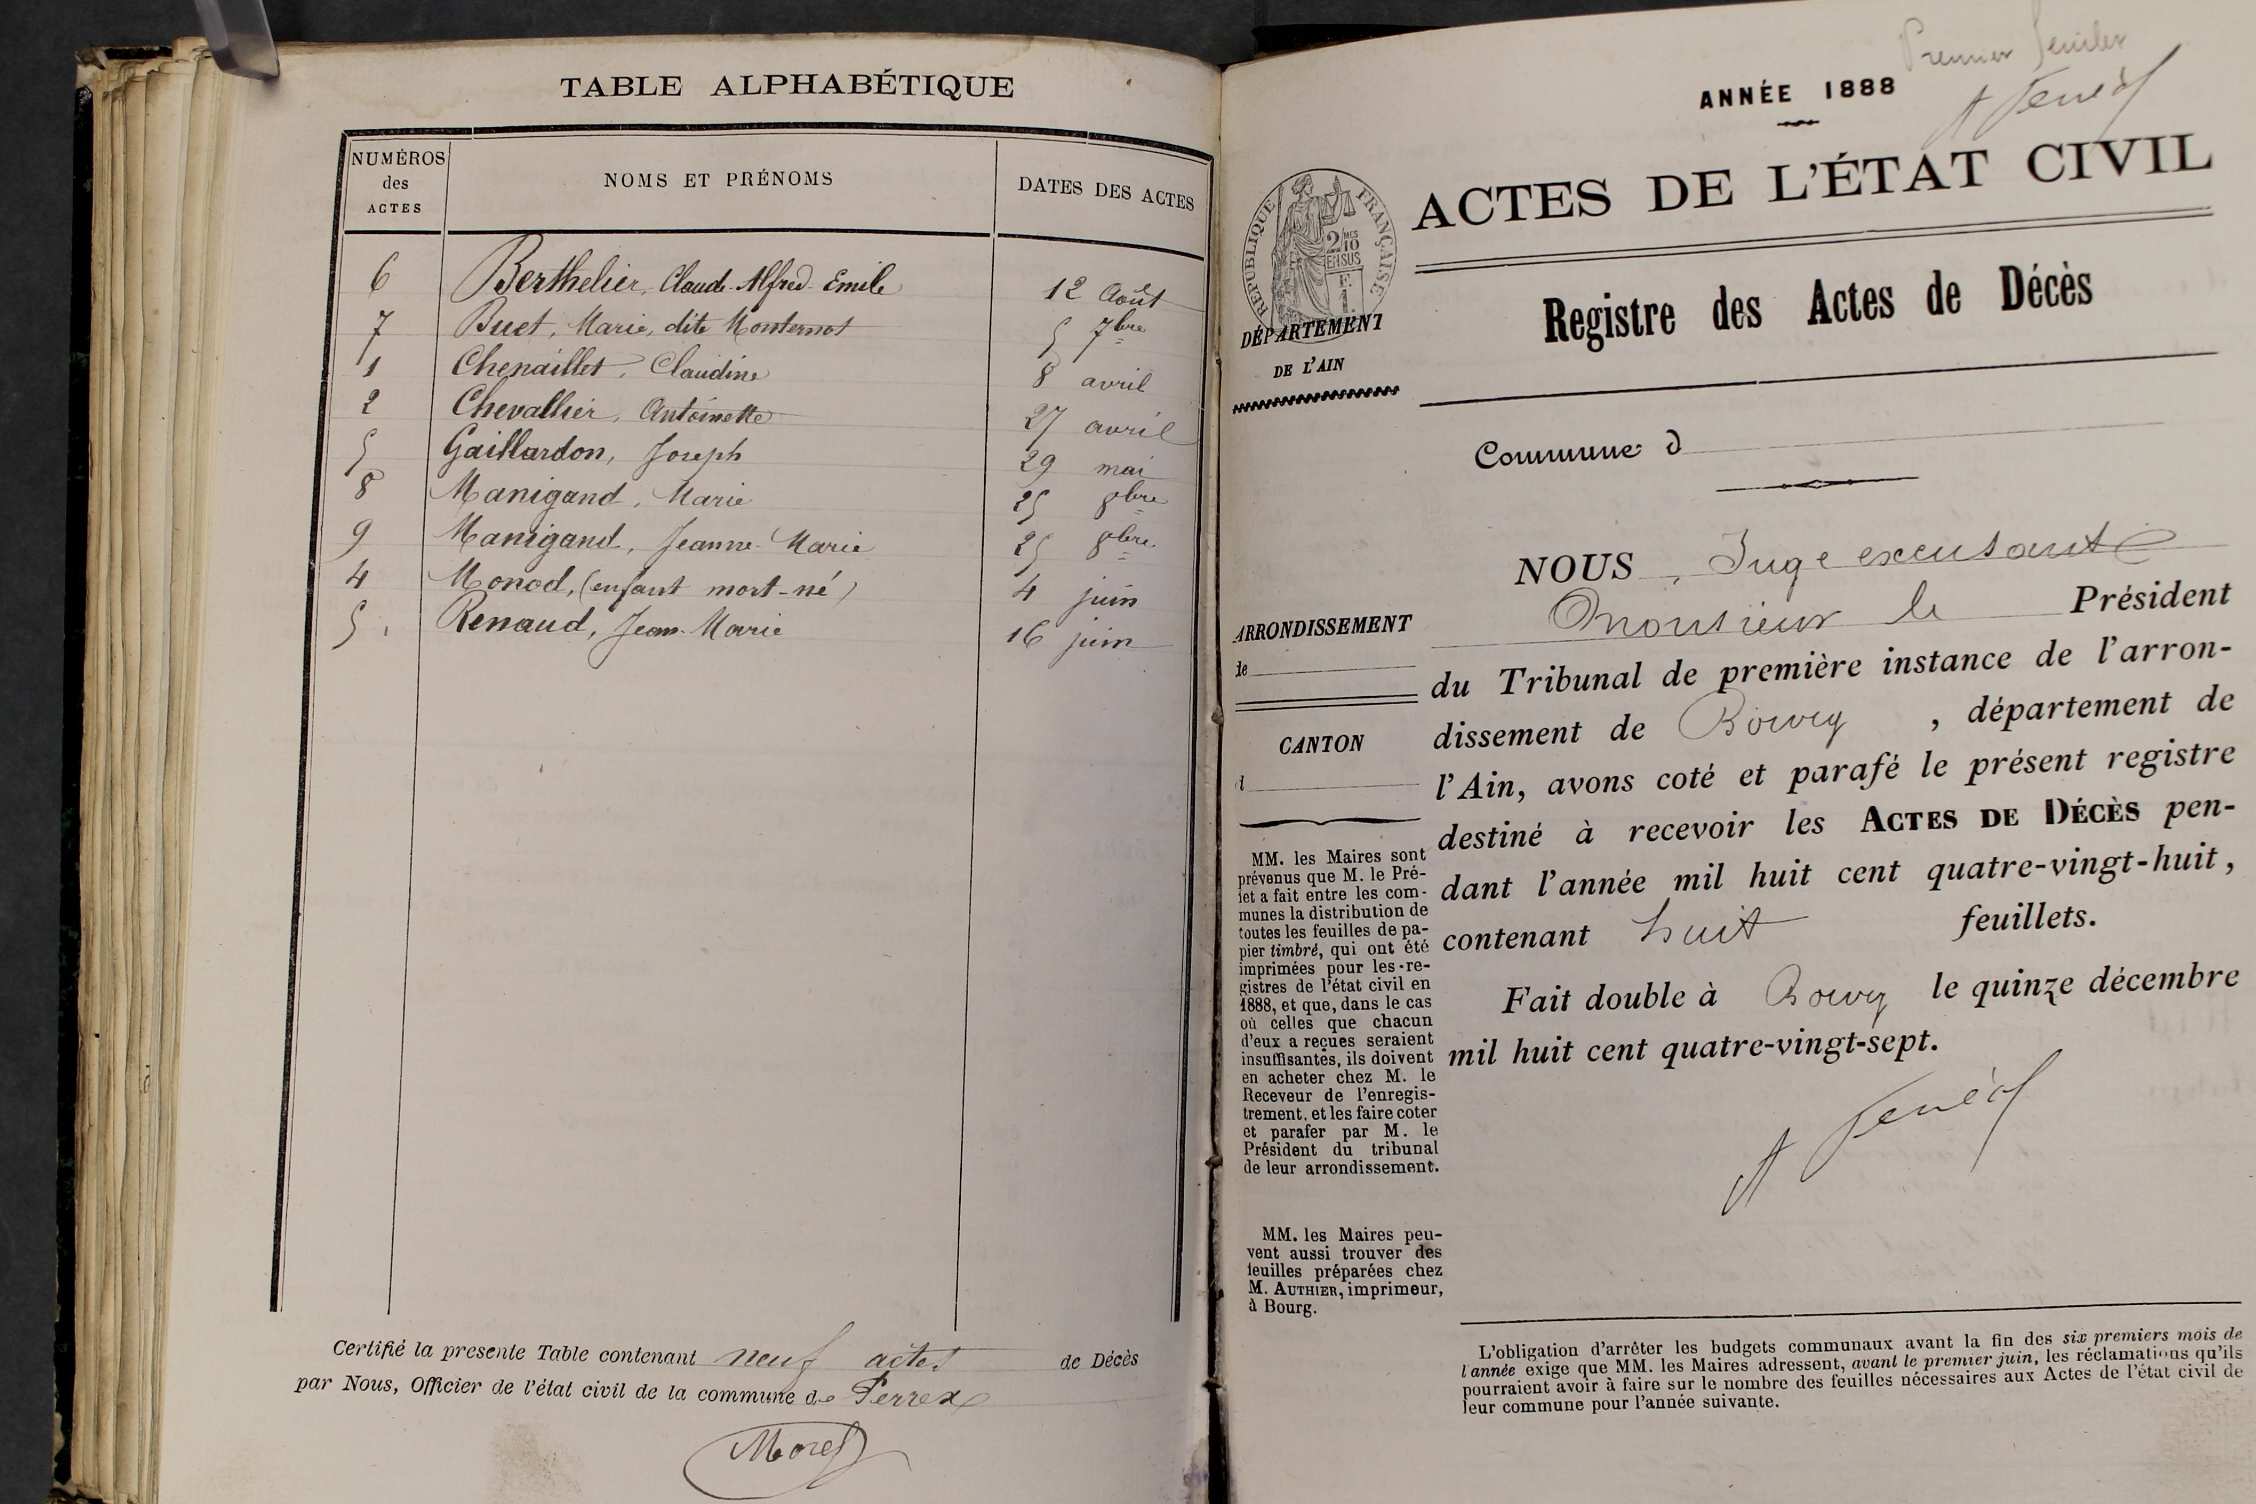 TABLE ALPHABÉTIQUE
NUMÉROS des ACTES
NOMS ET PRÉNOMS
DATES DES ACTES
6 Berthelier, Claude-Alfred-Emile 12 Août
7 Buet, Marie, dite Monternot 5 7bre
1 Chenaillet, Claudine 8 avril
2 Chevallier, Antoinette 27 avril
5 Gaillardon, Joseph 29 mai
8 Manigand, Marie 25 8bre
9 Manigand, Jeanne-Marie 25 8bre
4 Monod, (enfant mort-né) 4 juin
5 Renaud, Jean-Marie 16 juin
Certifié la presente Table contenant neuf actes de Décès
par Nous, Officier de l'état civil de la commune de Perrex
Morel
Premier feuillet
ANNÉE 1888
ACTES DE L'ÉTAT CIVIL
RÉPUBLIQUE FRANÇAISE
2 MES 10
EN SUS
E.
1.
DÉPARTEMENT
DE L'AIN
Registre des Actes de Décès
Commune d
NOUS, Juge excusant
Monsieur le Président
du Tribunal de première instance de l'arron-
dissement de Bourg, département de
l'Ain, avons coté et parafé le présent registre
destiné à recevoir les ACTES DE DÉCÈS pen-
dant l'année mil huit cent quatre-vingt-huit,
contenant huit feuillets.
Fait double à Bourg le quinze décembre
mil huit cent quatre-vingt-sept.
ARRONDISSEMENT
de
CANTON
d
MM. les Maires sont
prévenus que M. le Pré-
fet a fait entre les com-
munes la distribution de
toutes les feuilles de pa-
pier timbré, qui ont été
imprimées pour les re-
gistres de l'état civil en
1888, et que, dans le cas
où celles que chacun
d'eux a reçues seraient
insuffisantes, ils doivent
en acheter chez M. le
Receveur de l'enregis-
trement, et les faire coter
et parafer par M. le
Président du tribunal
de leur arrondissement.
MM. les Maires peu-
vent aussi trouver des
feuilles préparées chez
M. AUTHIER, imprimeur,
à Bourg.
L'obligation d'arrêter les budgets communaux avant la fin des six premiers mois de
l'année exige que MM. les Maires adressent, avant le premier juin, les réclamations qu'ils
pourraient avoir à faire sur le nombre des feuilles nécessaires aux Actes de l'état civil de
leur commune pour l'année suivante.